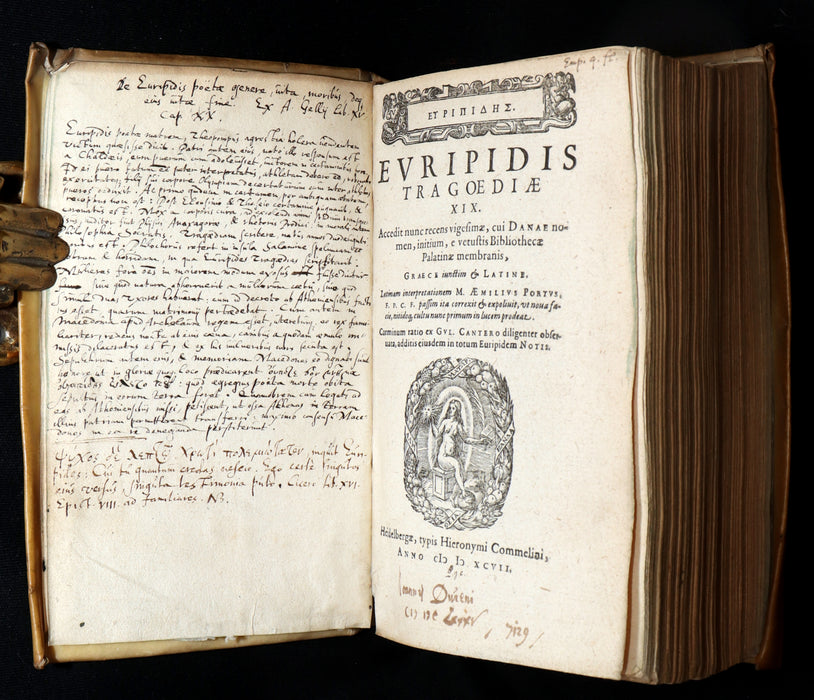 De Euripidis poëtæ genere, vita, moribus deque
eius vitæ fine. Ex A Gellij Lib. XV
Cap XX.
Euripidis poetæ matrem, Theopompus agrestia holera vendentem
victum quæsisse dicit. Patri autem eius nato illo responsum est
a Chaldæis, eum puerum cum adolevisset, victorem in certaminibus
pueros ordinavit. Ac primo quidem in certamen per ambiguam ætatem,
receptus non est: Post Eleusinio & Theseo certamine pugnavit, &
coronatus est. Mox a corporis cura
auditor fuit Physici Anaxagoræ, & rhetoris Prodici, in morali autem
philosophia Socratis. Tragœdiam scribere natus annos duodeviginti
adortus est. Philochorus refert in insula Salamine speluncam
tetram & horridam in qua Euripides Tragœdias scriptitarit.
Mulieres fere oes in maiorem modum exosus fuisse dicitur
sive quod natura abhorruit a mulierum cœtu, sive quod
simul duas uxores habuerat, cum id decreto ab Atheniensibus factum
ius esset, quarum matrimonii pertædebat. Cum autem in
Macedonia apud Archelaum regem esset, uteretur eo rex fami-
liariter, rediens nocte ab eius cœna, canibus a quodam æmulo im-
missis dilaceratus est, & ex his vulneribus mors secuta est.
Sepulchrum autem eius, & memoriam Macedones eo dignati sunt
honore ut in gloriæ quoque loco prædicarent
quod egregius poëta morte obita
sepultus in eorum terra foret. Quamobrem cum legati ad
eos ab Atheniensibus missi petissent, ut ossa Athenas in terram
illius patriam permitterent transferri, maximo consensu Mace-
dones in ea re deneganda perstiterunt.
Ψῦχος δὲ λεπτῷ χρωτὶ πολεμιώτατον, inquit Euri-
pides. Cui tu quantum credas nescio. Ego certe singulos
eius versus, singula testimonia puto. Cicero lib. XVI.
Epist. VIII. ad Familiares. NB.
ΕΥΡΙΠΙΔΗΣ.
EVRIPIDIS
TRAGOEDIÆ
XIX.
Accedit nunc recens vigesimæ, cui DANAE no-
men, initium, e vetustis Bibliothecæ
Palatinæ membranis,
GRAECE iunctim & LATINE,
Latinam interpretationem M. ÆMILIUS PORTUS,
F. P. C. F. passim ita correxit & expolivit, ut nova fa-
cie, novoq; cultu nunc primum in lucem prodeat.
Carminum ratio ex GUL. CANTERO diligenter obser-
vata, additis eiusdem in totum Euripidem NOTIS.
Heidelbergæ, typis Hieronymi Commelini,
ANNO CIↃ IↃ XCVII.
7129